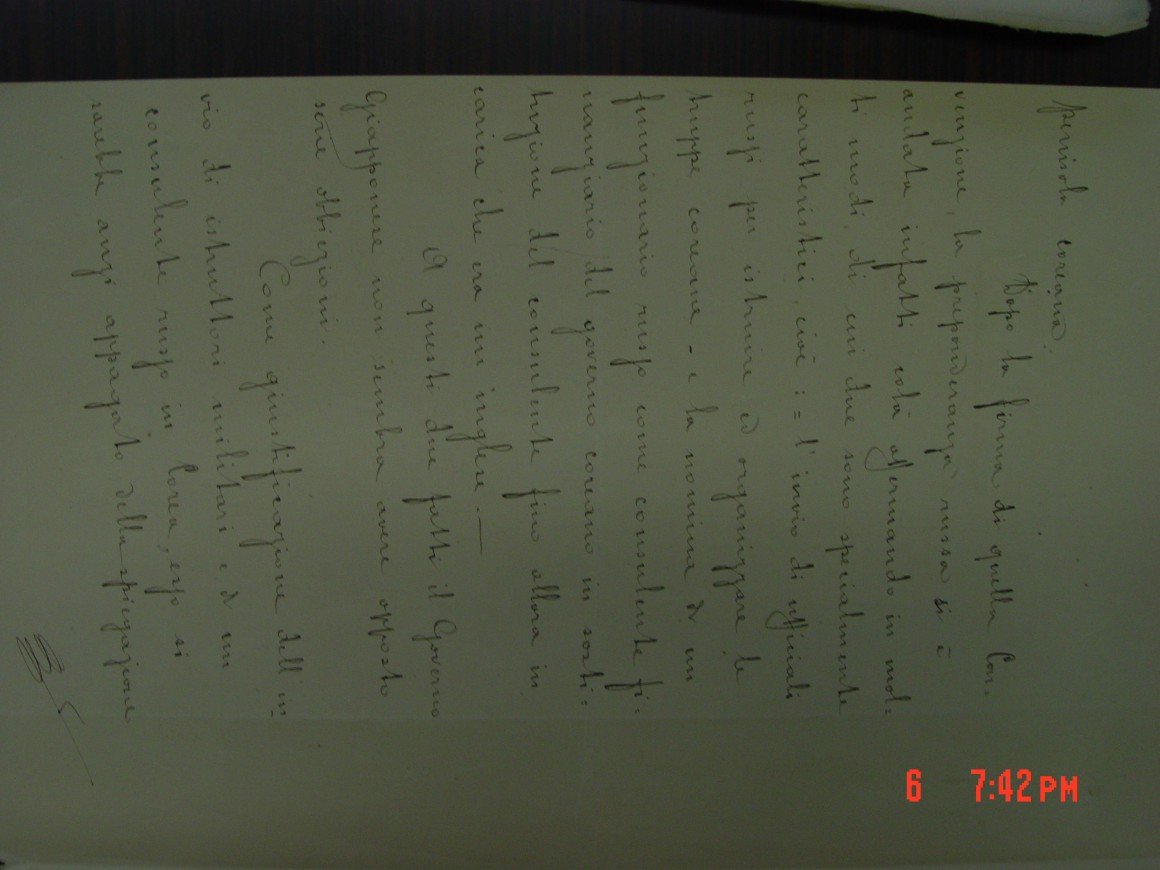 penisola coreana.
Dopo la firma di quella Con-
venzione, la preponderanza russa si è
andata infatti colà affermando in mol-
ti modi, di cui due sono specialmente
caratteristici, cioè := l'invio di ufficiali
russi per istruire ed organizzare le
truppe coreane - e la nomina di un
funzionario russo come consulente fi-
nanziario del governo coreano in sosti-
tuzione del consulente fino allora in
carica che era un inglese.—
A questi due fatti il Governo
Giapponese non sembra avere opposto
serie obbiezioni.
Come giustificazione dell'in-
vio di istruttori militari e di un
consulente russo in Corea, esso si
sarebbe anzi appagato della spiegazione
6 7:42 PM